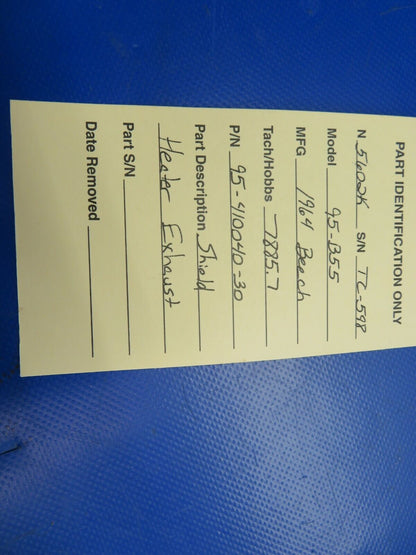 PART IDENTIFICATION ONLY
N 5602K S/N TC-598
Model 95-B55
MFG 1964 Beech
Tach/Hobbs 7885.7
P/N 95-410040-30
Part Description Shield
Heater Exhaust
Part S/N
Date Removed